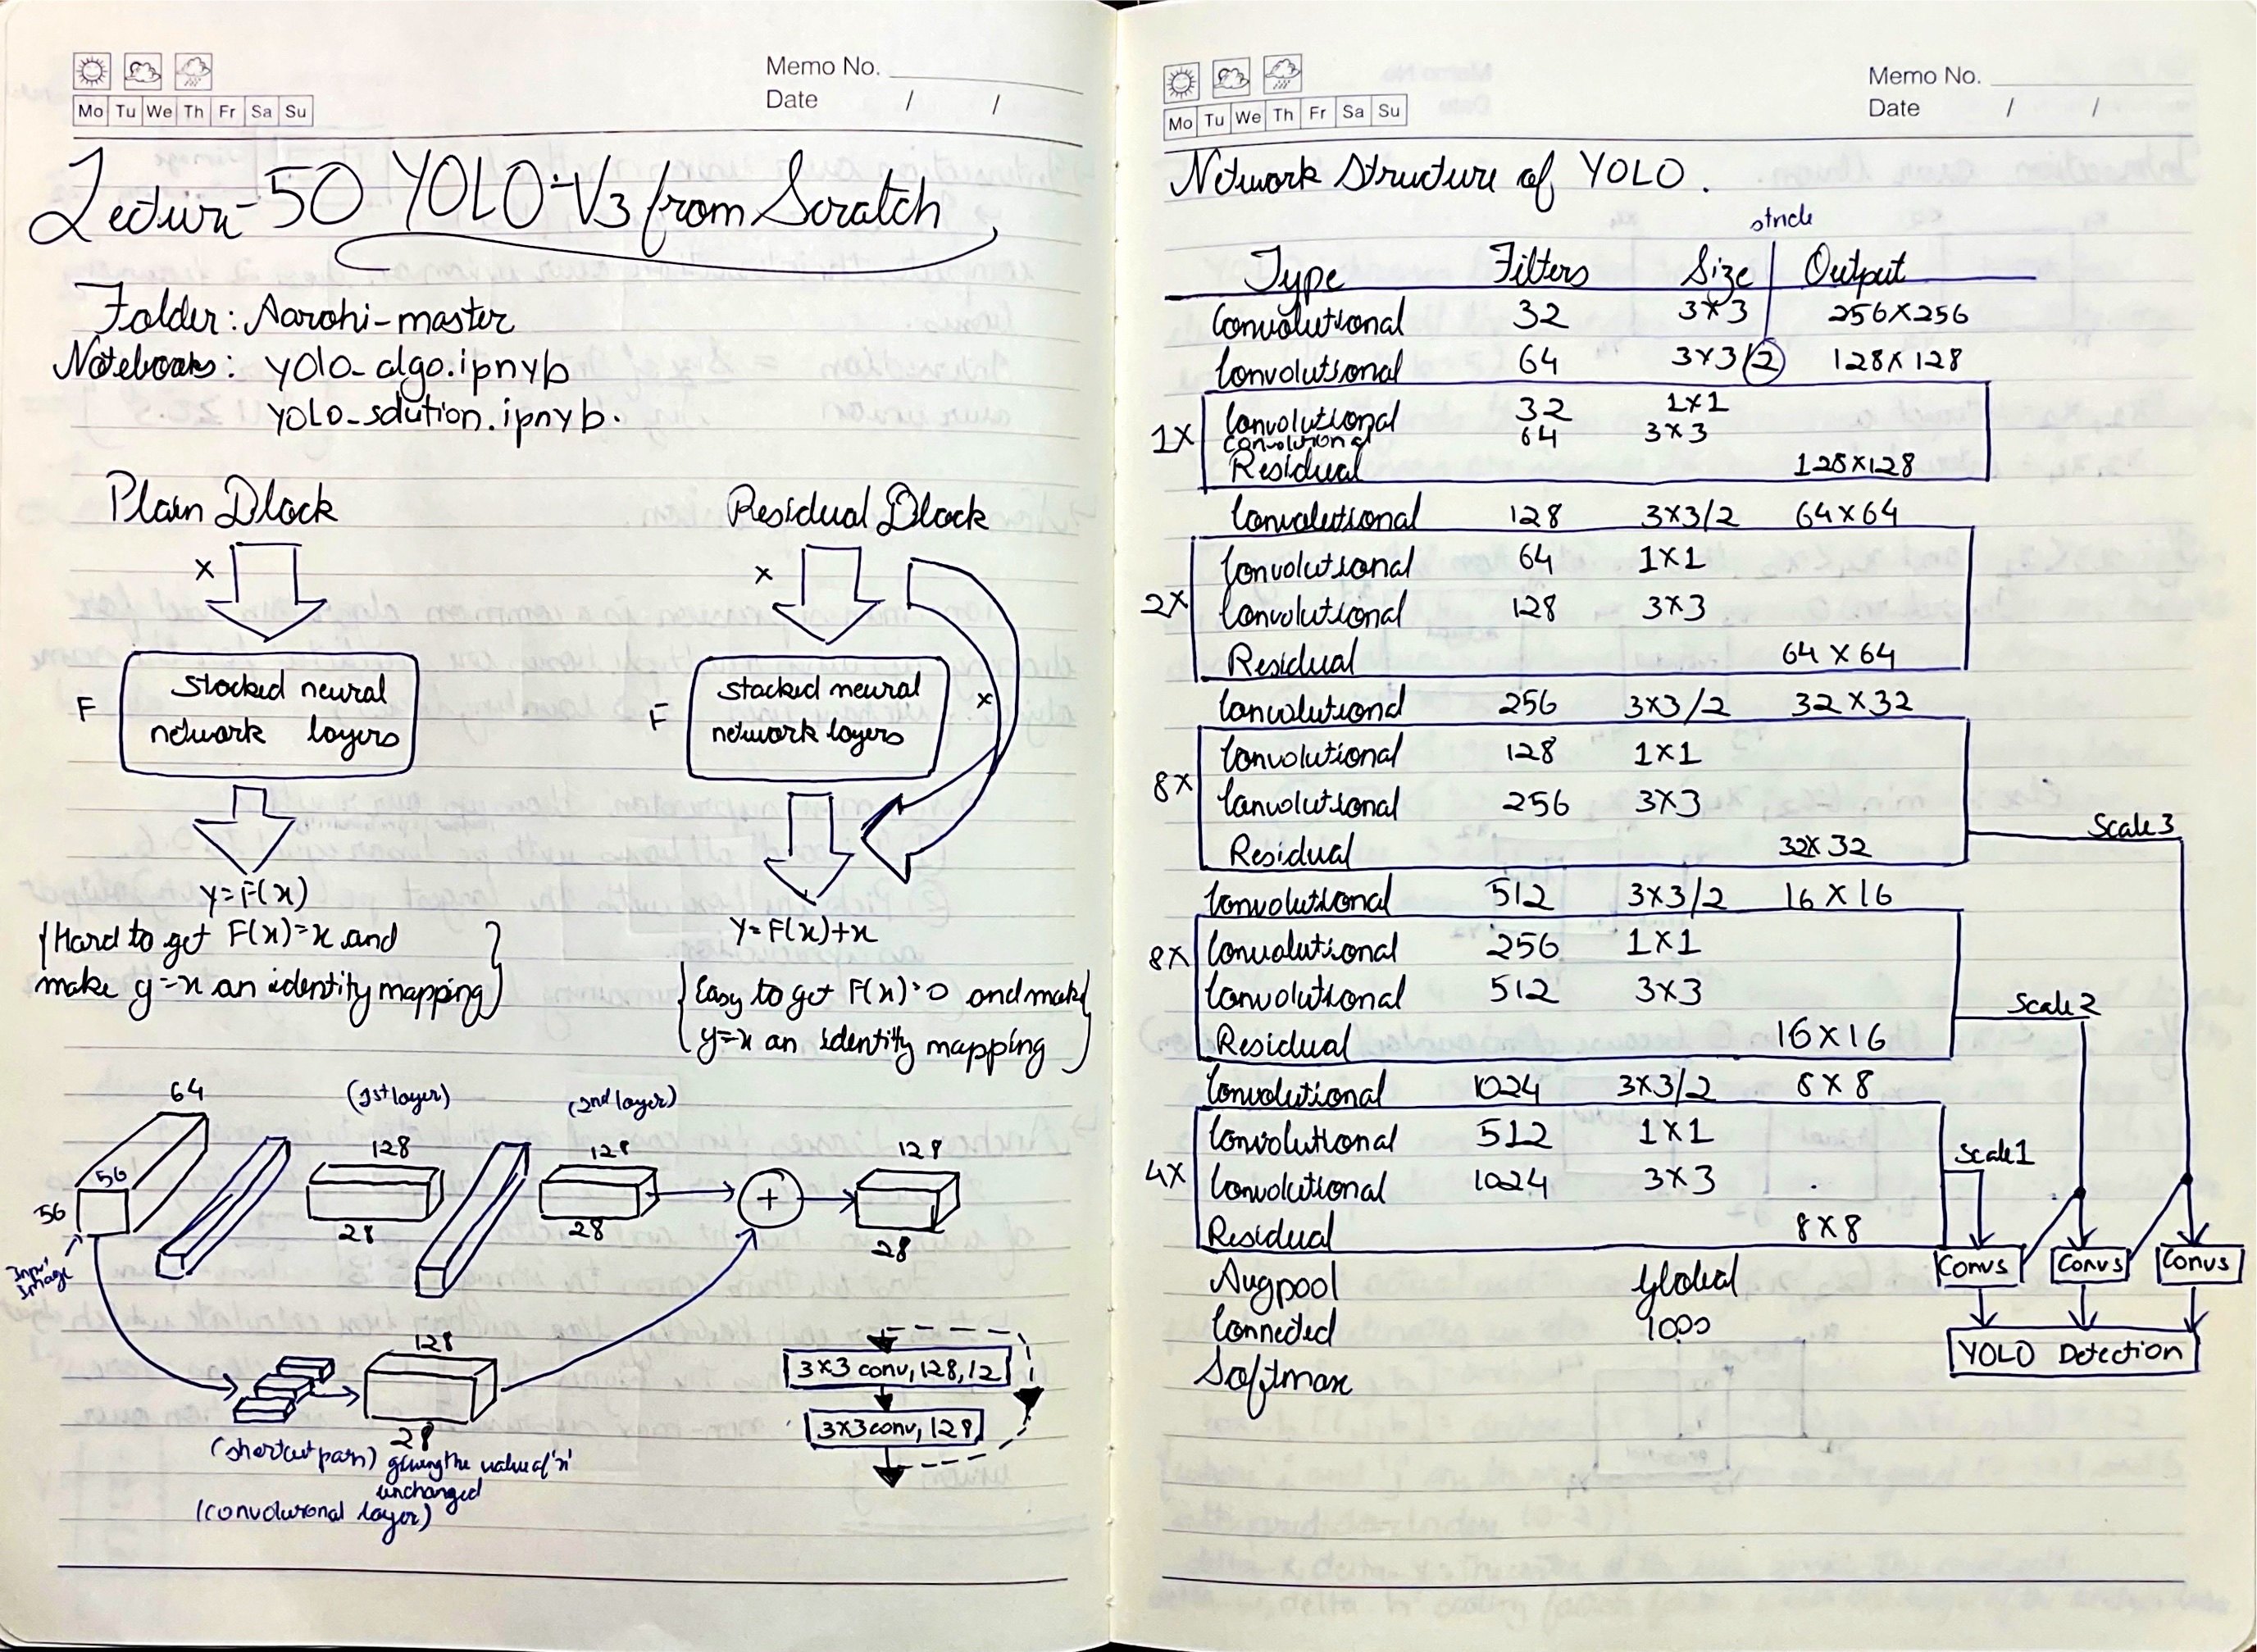 Mo Tu We Th Fr Sa Su
Memo No.
Date / /
Lecture-50 YOLO-V3 from Scratch
Folder: Aarohi-master
Notebooks: yolo_algo.ipnyb
yolo_solution.ipnyb.
Plain Block
x
F
stacked neural
network layers
y=F(x)
{Hard to get F(x)=x and
make y=x an identity mapping}
Residual Block
x
F
stacked neural
network layers
x
y=F(x)+x
{Easy to get F(x)=0 and make
y=x an identity mapping}
64
(1st layer)
(2nd layer)
56
56
128
28
128
28
+
128
28
Input
Image
128
28
(shortcut path) giving the value of 'x'
unchanged
(convolutional layer)
3x3 conv, 128, /2
3x3 conv, 128
Mo Tu We Th Fr Sa Su
Memo No.
Date / /
Network Structure of YOLO.
stride
Type Filters Size Output
Convolutional 32 3x3 256x256
Convolutional 64 3x3/2 128x128
1x
Convolutional 32 1x1
Convolutional 64 3x3
Residual 128x128
Convolutional 128 3x3/2 64x64
2x
Convolutional 64 1x1
Convolutional 128 3x3
Residual 64x64
Convolutional 256 3x3/2 32x32
8x
Convolutional 128 1x1
Convolutional 256 3x3
Residual 32x32
Scale 3
Convolutional 512 3x3/2 16x16
8x
Convolutional 256 1x1
Convolutional 512 3x3
Residual 16x16
Scale 2
Convolutional 1024 3x3/2 8x8
4x
Convolutional 512 1x1
Convolutional 1024 3x3
Residual 8x8
Scale 1
Convs Convs Convs
Avgpool Global
Connected 1000
Softmax
YOLO Detection